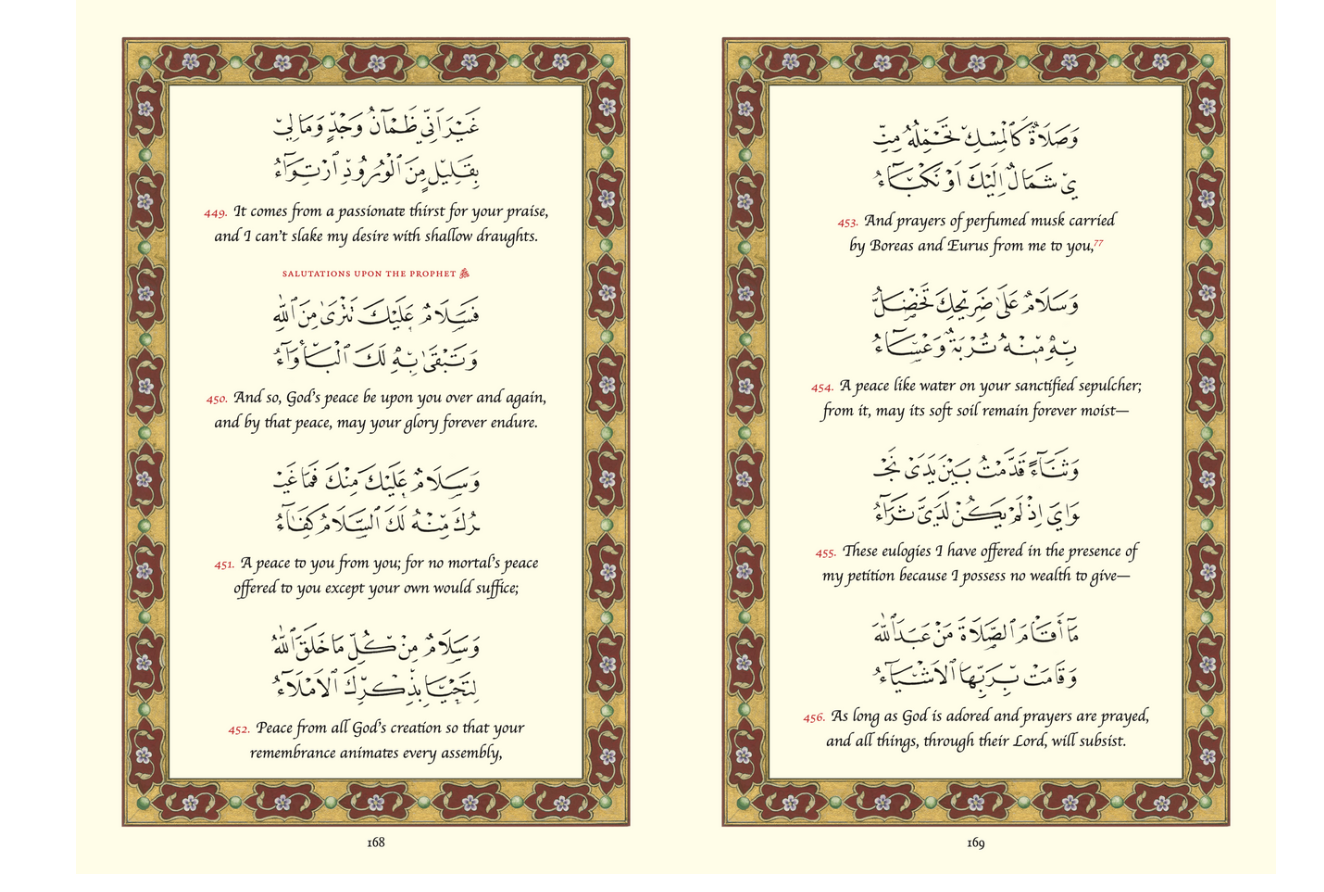 غَيْرَ أَنِّي ظَمْآنُ وَجْدٍ وَمَا لِيْ
بِقَلِيْلٍ مِنَ ٱلْوُرُوْدِ ٱرْتِوَآءُ
449. It comes from a passionate thirst for your praise,
and I can't slake my desire with shallow draughts.
SALUTATIONS UPON THE PROPHET ﷺ
فَسَلَامٌ عَلَيْكَ تَتْرَىٰ مِنَ ٱللّٰهِ
وَتَبْقَىٰ بِهِ لَكَ ٱلْبَأْوَآءُ
450. And so, God's peace be upon you over and again,
and by that peace, may your glory forever endure.
وَسَلَامٌ عَلَيْكَ مِنْكَ فَمَا غَيْـ
ـرُكَ مِنْهُ لَكَ ٱلسَّلَامُ كِفَآءُ
451. A peace to you from you; for no mortal's peace
offered to you except your own would suffice;
وَسَلَامٌ مِنْ كُلِّ مَا خَلَقَ ٱللّٰهُ
لِتَحْيَا بِذِكْرِكَ ٱلْأَمْلَآءُ
452. Peace from all God's creation so that your
remembrance animates every assembly,
168
وَصَلَاةٌ كَٱلْمِسْكِ تَحْمِلُهُ مِنِّـ
ـيْ شَمَالٌ إِلَيْكَ أَوْ نَكْبَآءُ
453. And prayers of perfumed musk carried
by Boreas and Eurus from me to you,77
وَسَلَامٌ عَلَىٰ ضَرِيْحِكَ تَخْضَلُّ
بِهِ مِنْهُ تُرْبَةٌ وَعْسَآءُ
454. A peace like water on your sanctified sepulcher;
from it, may its soft soil remain forever moist—
وَثَنَآءٌ قَدَّمْتُ بَيْنَ يَدَيْ نَجْـ
ـوَايَ إِذْ لَمْ يَكُنْ لَدَيَّ ثَرَآءُ
455. These eulogies I have offered in the presence of
my petition because I possess no wealth to give—
مَآ أَقَامَ ٱلصَّلَاةَ مَنْ عَبَدَ ٱللّٰهَ
وَقَامَتْ بِرَبِّهَا ٱلْأَشْيَآءُ
456. As long as God is adored and prayers are prayed,
and all things, through their Lord, will subsist.
169